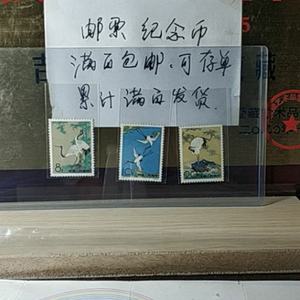 邮票 纪念币
满百包邮.可存单
累计满百发货.
吉
藏
8